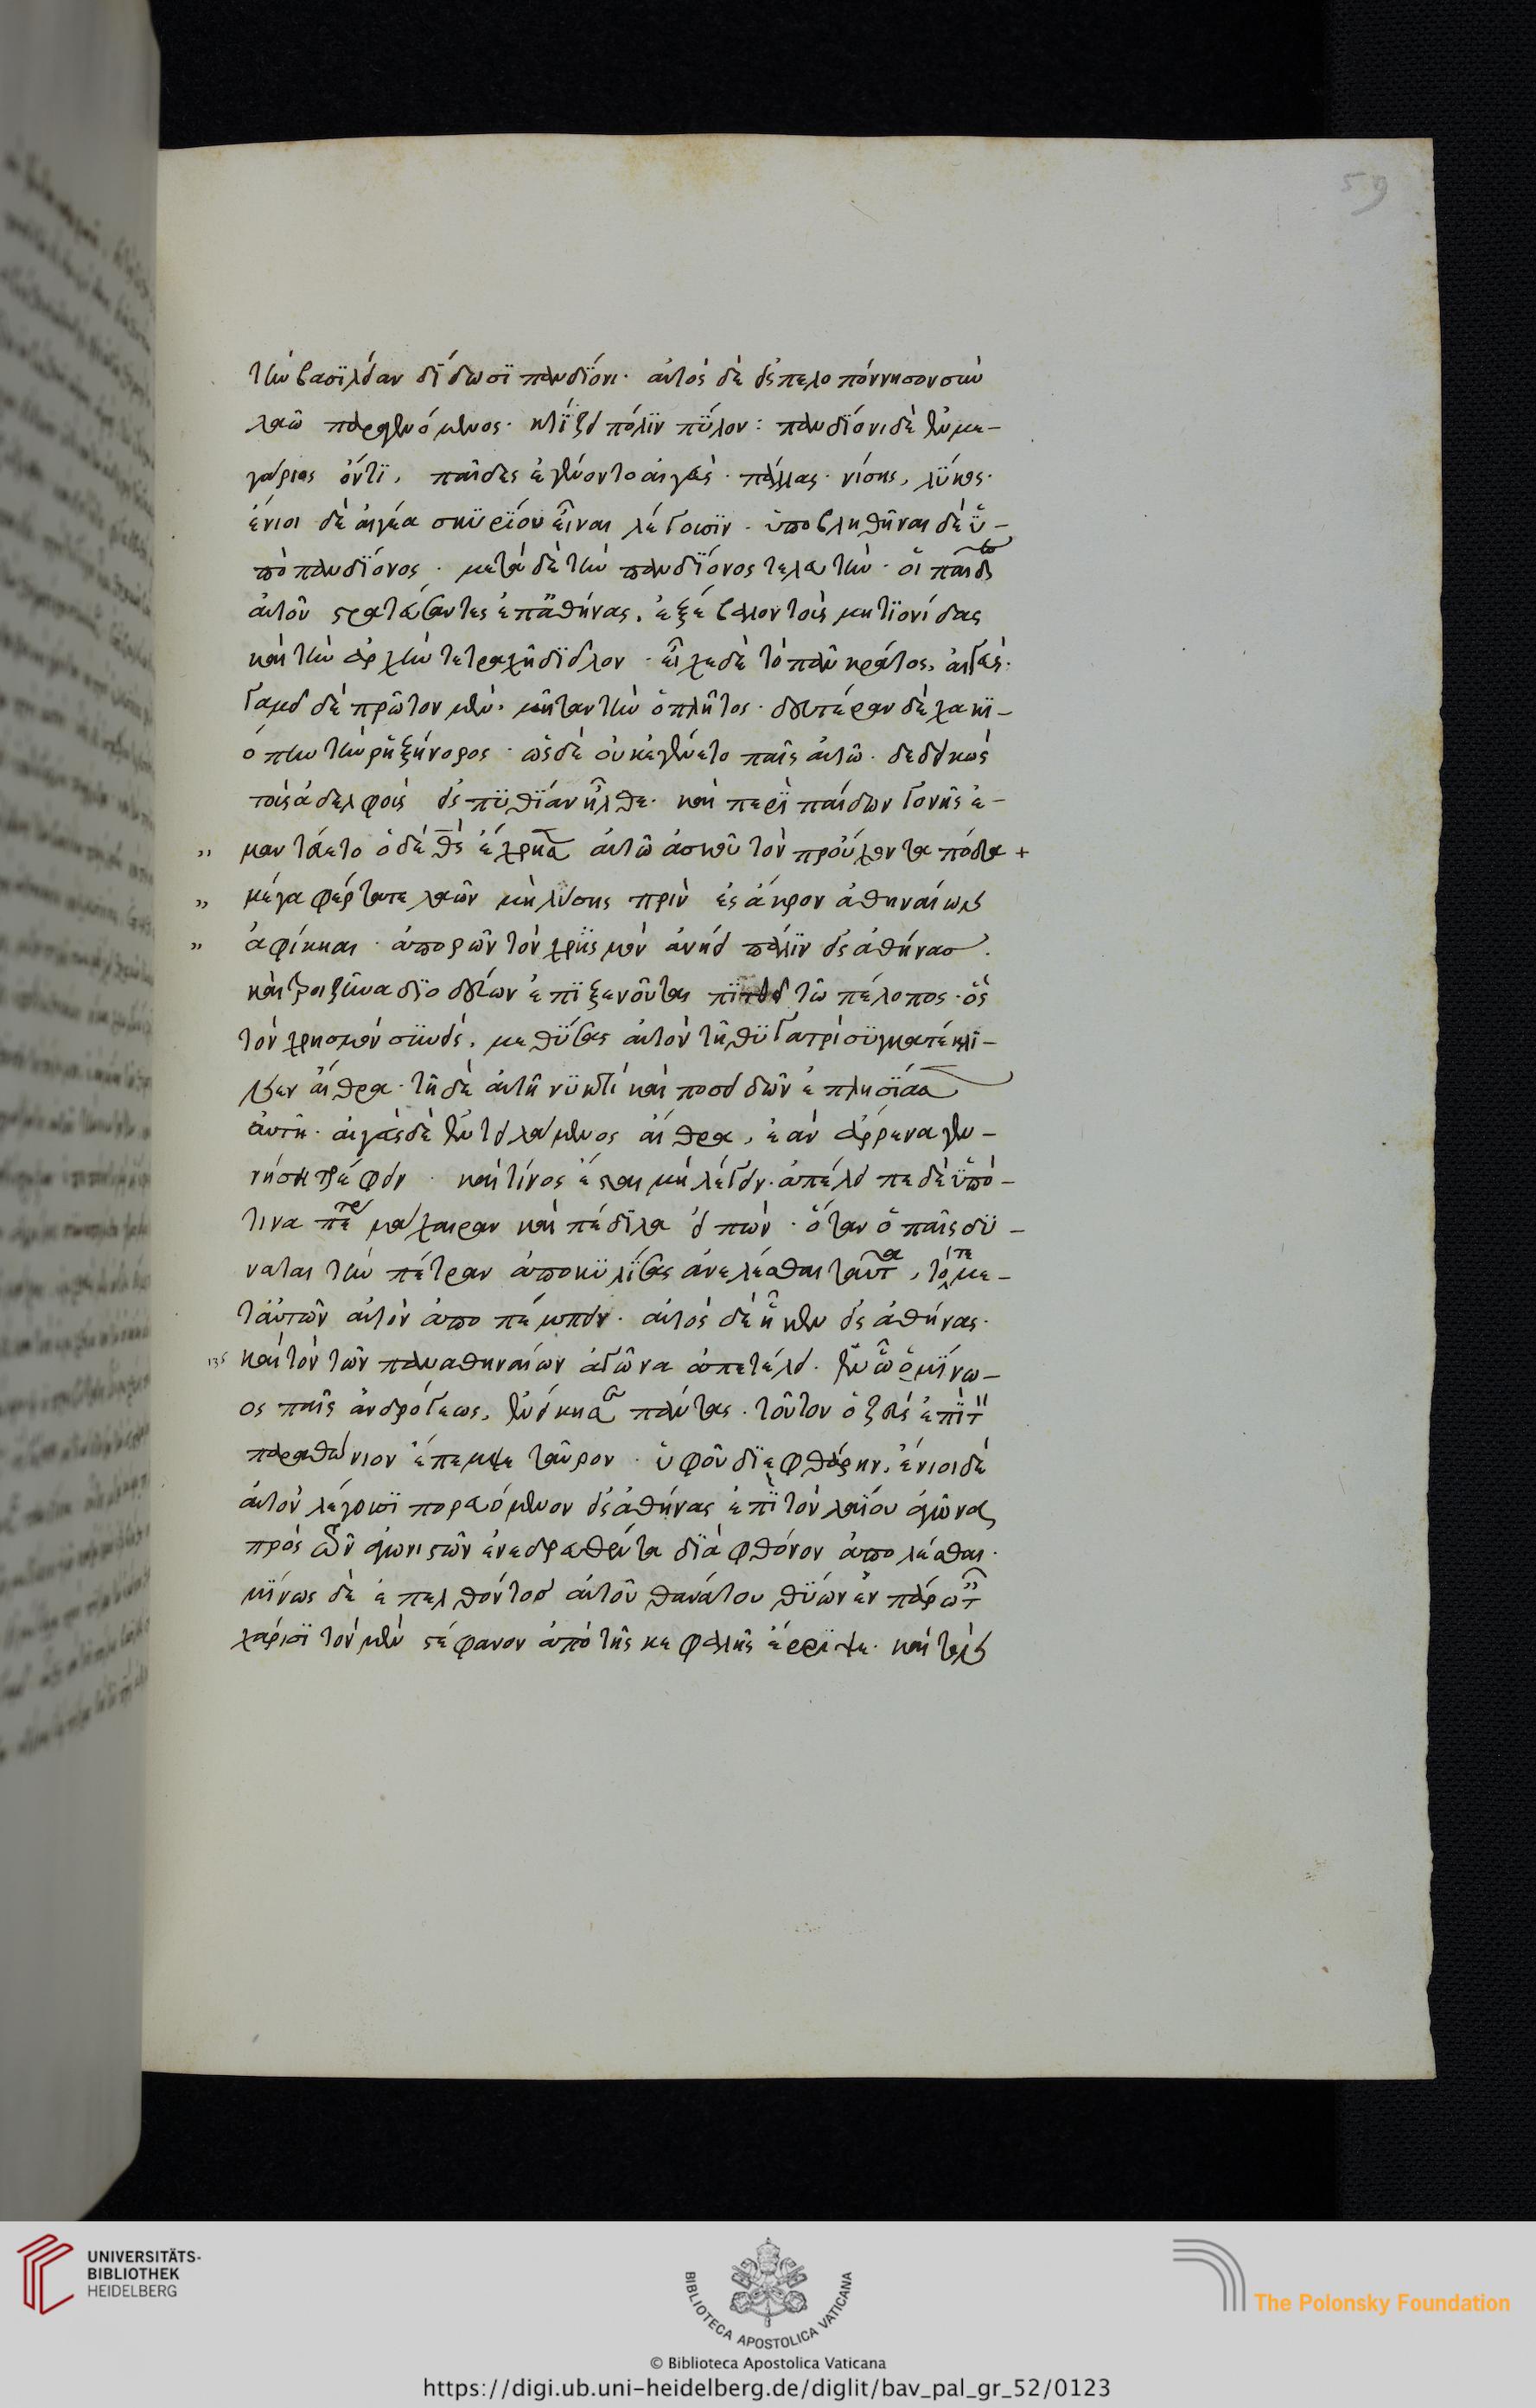 59
τὴν βασϊλείαν δΐδωσϊ πανδϊόνι· αὐτὸς δὲ εἰς πελοπόννησον σὺν
λαῶ παραγενόμενος· κτΐζει πόλϊν πΰλον: πανδΐονι δὲ ἐν με-
γάροις ὄντϊ, παῖδες ἐγένοντο αἰγεὺς· πάλλας· νίσης, λΰκος·
ἔνιοι δὲ αἰγέα σκϋρΐου εἶναι λέγουσϊν· ὑποβληθῆναι δὲ ὑ-
πὸ πανδΐονος· μετὰ δὲ τὴν πανδΐονος τελευτὴν· οἱ παῖδες
αὐτοῦ στρατεύσαντες ἐπ' ἀθήνας, ἐξέβαλον τοὺς μητϊονίδας
καὶ τὴν ἀρχὴν τετραχῆ διεῖλον· εἶχε δὲ τὸ πᾶν κράτος, αἰγεὺς·
γαμεῖ δὲ πρῶτον μὲν· μήταν τὴν ὁπλῆτος· δευτέραν δὲ χαλκϊ-
όπην τὴν ῥηξήνορος· ὡς δὲ οὐκ ἐγένετο παῖς αὐτῶ· δεδοικὼς
τοὺς ἀδελφοὺς εἰς πϋθΐαν ἦλθε· καὶ περὶ παίδων γονῆς ἐ-
" μαντεύετο ὁ δὲ θς ἔχρησεν αὐτῶ ἀσκοῦ τὸν προὔχοντα πόδα +
" μέγα φέρτατε λαῶν μὴ λύσης πρὶν ἐς ἄκρον ἀθηναίων
" ἀφίκηαι· ἀπορῶν τὸν χρησμὸν ἀνῄει πάλϊν εἰς ἀθήνας.
καὶ τροιζῆνα δϊοδεύων ἐπϊξενοῦται πϊτθεῖ τῶ πέλοπος· ὃς
τὸν χρησμὸν σϋνεὶς, μεθΰσας αὐτὸν τῆ θϋγατρὶ σϋγκατέκλϊ-
νεν αἴθρα· τῆ δὲ αὐτῆ νϋκτὶ καὶ ποσειδῶν ἐπλησΐασεν
αὐτῆ· αἰγεὺς δὲ ἐντειλάμενος αἴθρα, ἐὰν ἄρρενα γεν-
νήση τρέφειν· καὶ τίνος ἔσται μὴ λέγειν· ἀπέλειπε δὲ ὑπό
τινα πέτραν μάχαιραν καὶ πέδϊλα εἰπὼν· ὅταν ὁ παῖς δύ-
ναται τὴν πέτραν ἀποκϋλΐσας ἀνελέσθαι ταῦτα, τότε με-
τ' αὐτῶν αὐτὸν ἀποπέμπειν· αὐτὸς δὲ ἧκεν εἰς ἀθήνας·
135 καὶ τὸν τῶν παναθηναίων ἀγῶνα ἀπετέλει· ἐν ὧ ὁ μΐνω-
ος παῖς ἀνδρόγεως, ἐνίκησε πάντας· τοῦτον ὁ ζεὺς ἐπὶ τὸν
μαραθώνιον ἔπεμψε ταῦρον· ὑφ' οὗ δϊεφθάρην, ἔνιοι δὲ
αὐτὸν λέγουσϊ πορευόμενον εἰς ἀθήνας ἐπὶ τὸν λαΐου ἀγῶνα
πρὸς τῶν ἀγωνιστῶν ἐνεδρευθέντα δϊὰ φθόνον ἀπολέσθαι·
μΐνως δὲ ἐπελθόντος αὐτοῦ θανάτου θΰων ἐν πάρω τ
χάρισϊ τὸν μὲν στέφανον ἀπὸ τῆς κεφαλῆς ἔρρϊψε· καὶ τὸν
UNIVERSITÄTS-
BIBLIOTHEK
HEIDELBERG
BIBLIOTECA APOSTOLICA VATICANA
The Polonsky Foundation
© Biblioteca Apostolica Vaticana
https://digi.ub.uni-heidelberg.de/diglit/bav_pal_gr_52/0123